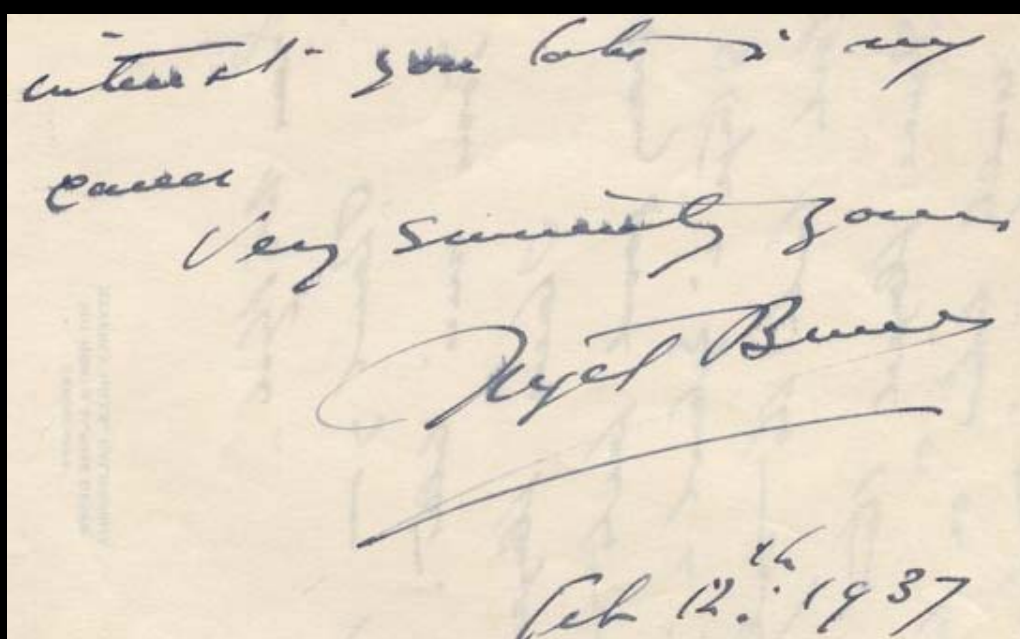 interest you take in my
career
Very sincerely yours
Nigel Bruce
Feb 12th. 1937